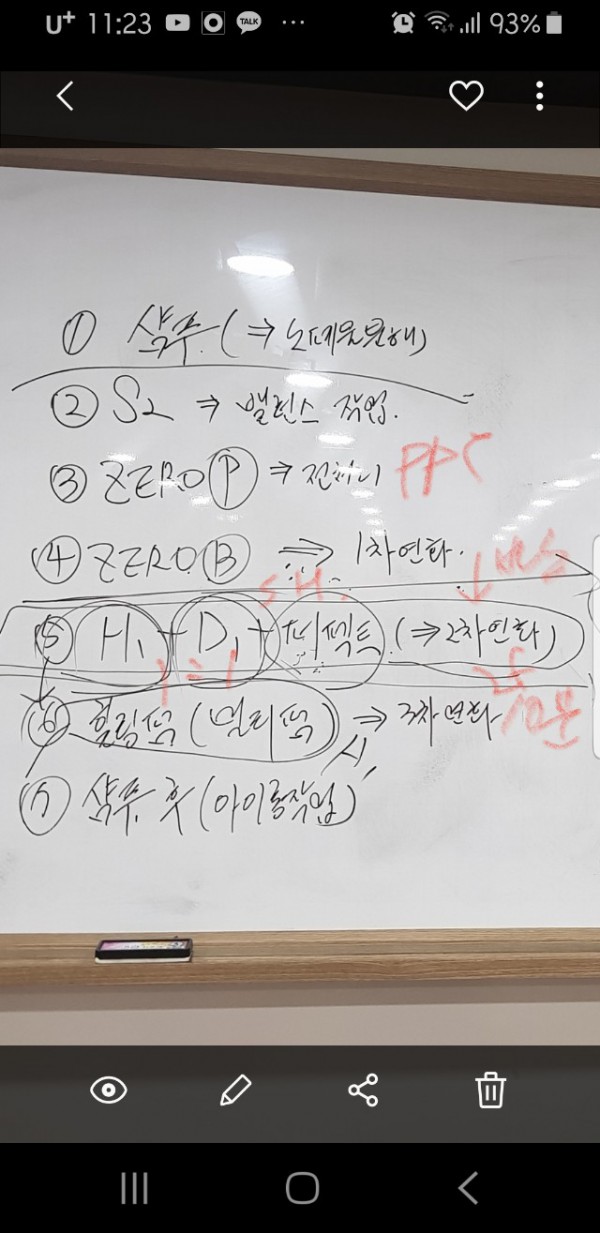 U+ 11:23 TALK ... 93%
① 샴푸. (⇒ 노폐물분해)
② S2 ⇒ 밸런스 작업.
③ ZERO Ⓟ ⇒ 전처리 PPC
④ ZERO Ⓑ ⇒ 1차연화.
⑤ H1 + D1 + 퍼펙트 (⇒ 2차연화)
1:1
⑥ 힐링펌 (멀티펌) ⇒ 3차연화 10분
⑦ 샴푸. 후 (아이롱작업)